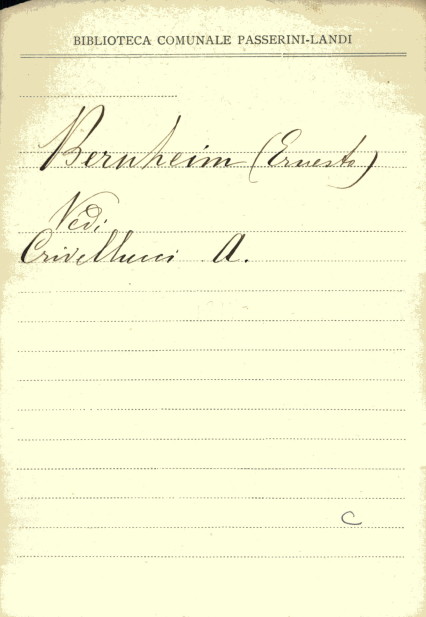 BIBLIOTECA COMUNALE PASSERINI-LANDI
Bernheim (Ernesto)
Vedi
Crivellucci A.
C